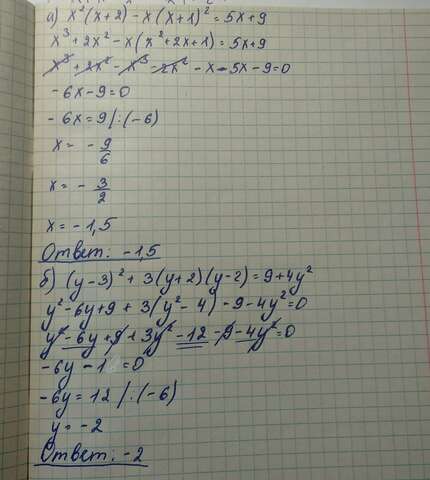 а) x²(x+2) - x(x+1)² = 5x+9
x³+2x² - x(x²+2x+1) = 5x+9
x³+2x²-x³-2x²-x-5x-9=0
-6x-9=0
-6x=9 |:(-6)
x= -9/6
x= -3/2
x= -1,5
Ответ: -1,5
б) (y-3)²+3(y+2)(y-2)=9+4y²
y²-6y+9+3(y²-4)-9-4y²=0
y²-6y+9+3y²-12-9-4y²=0
-6y-1 =0
-6y=12 |:(-6)
y= -2
Ответ: -2